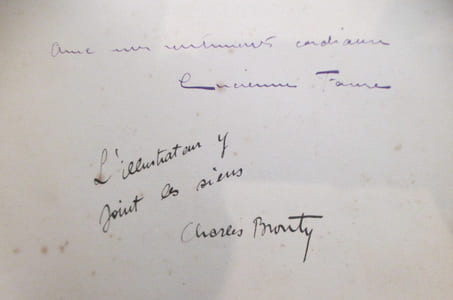 Avec mes sentiments cordiaux
Lucienne Favre
L'illustrateur y
joint les siens
Charles Brouty